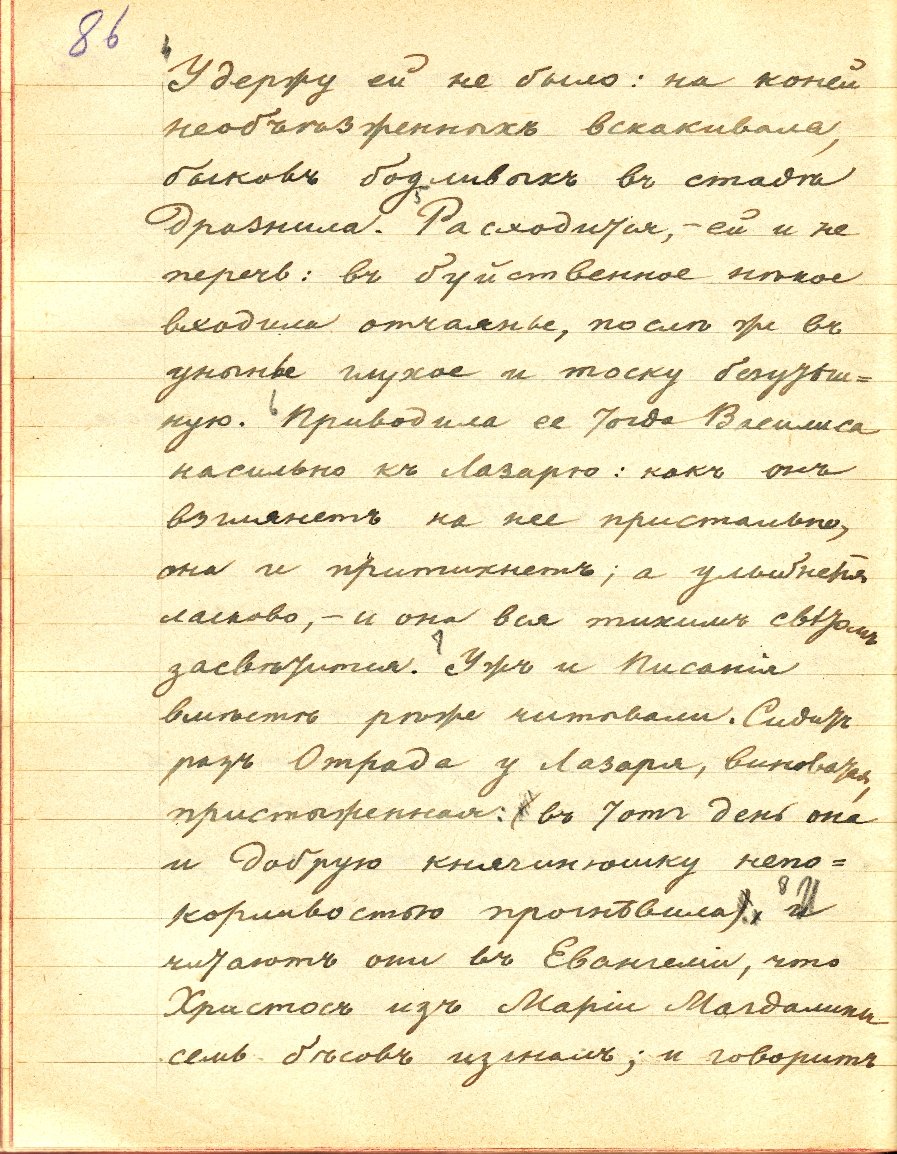 86
4
Удержу ей не было: на коней
необъѣзженныхъ вскакивала,
быковъ бодливыхъ въ стадѣ
дразнила. 5 Расходится, – ей и не
перечь: въ буйственное нѣкое
входила отчаянье, послѣ же въ
унынье глухое и тоску безутѣш=
ную. 6 Приводила ее тогда Василиса
насильно къ Лазарю: какъ онъ
взглянетъ на нее пристально,
она и притихнетъ; а улыбнется
ласково, – и она вся тихимъ свѣтомъ
засвѣтится. 7 Ужъ и Писанія
вмѣстѣ рѣже читывали. Сидитъ
разъ Отрада у Лазаря, виноватая,
пристыженная: (въ тотъ день она
и добрую княгинюшку непо=
корливостью прогнѣвила). 8 И
читаютъ они въ Евангеліи, что
Христосъ изъ Маріи Магдалины
семь бѣсовъ изгналъ; и говоритъ